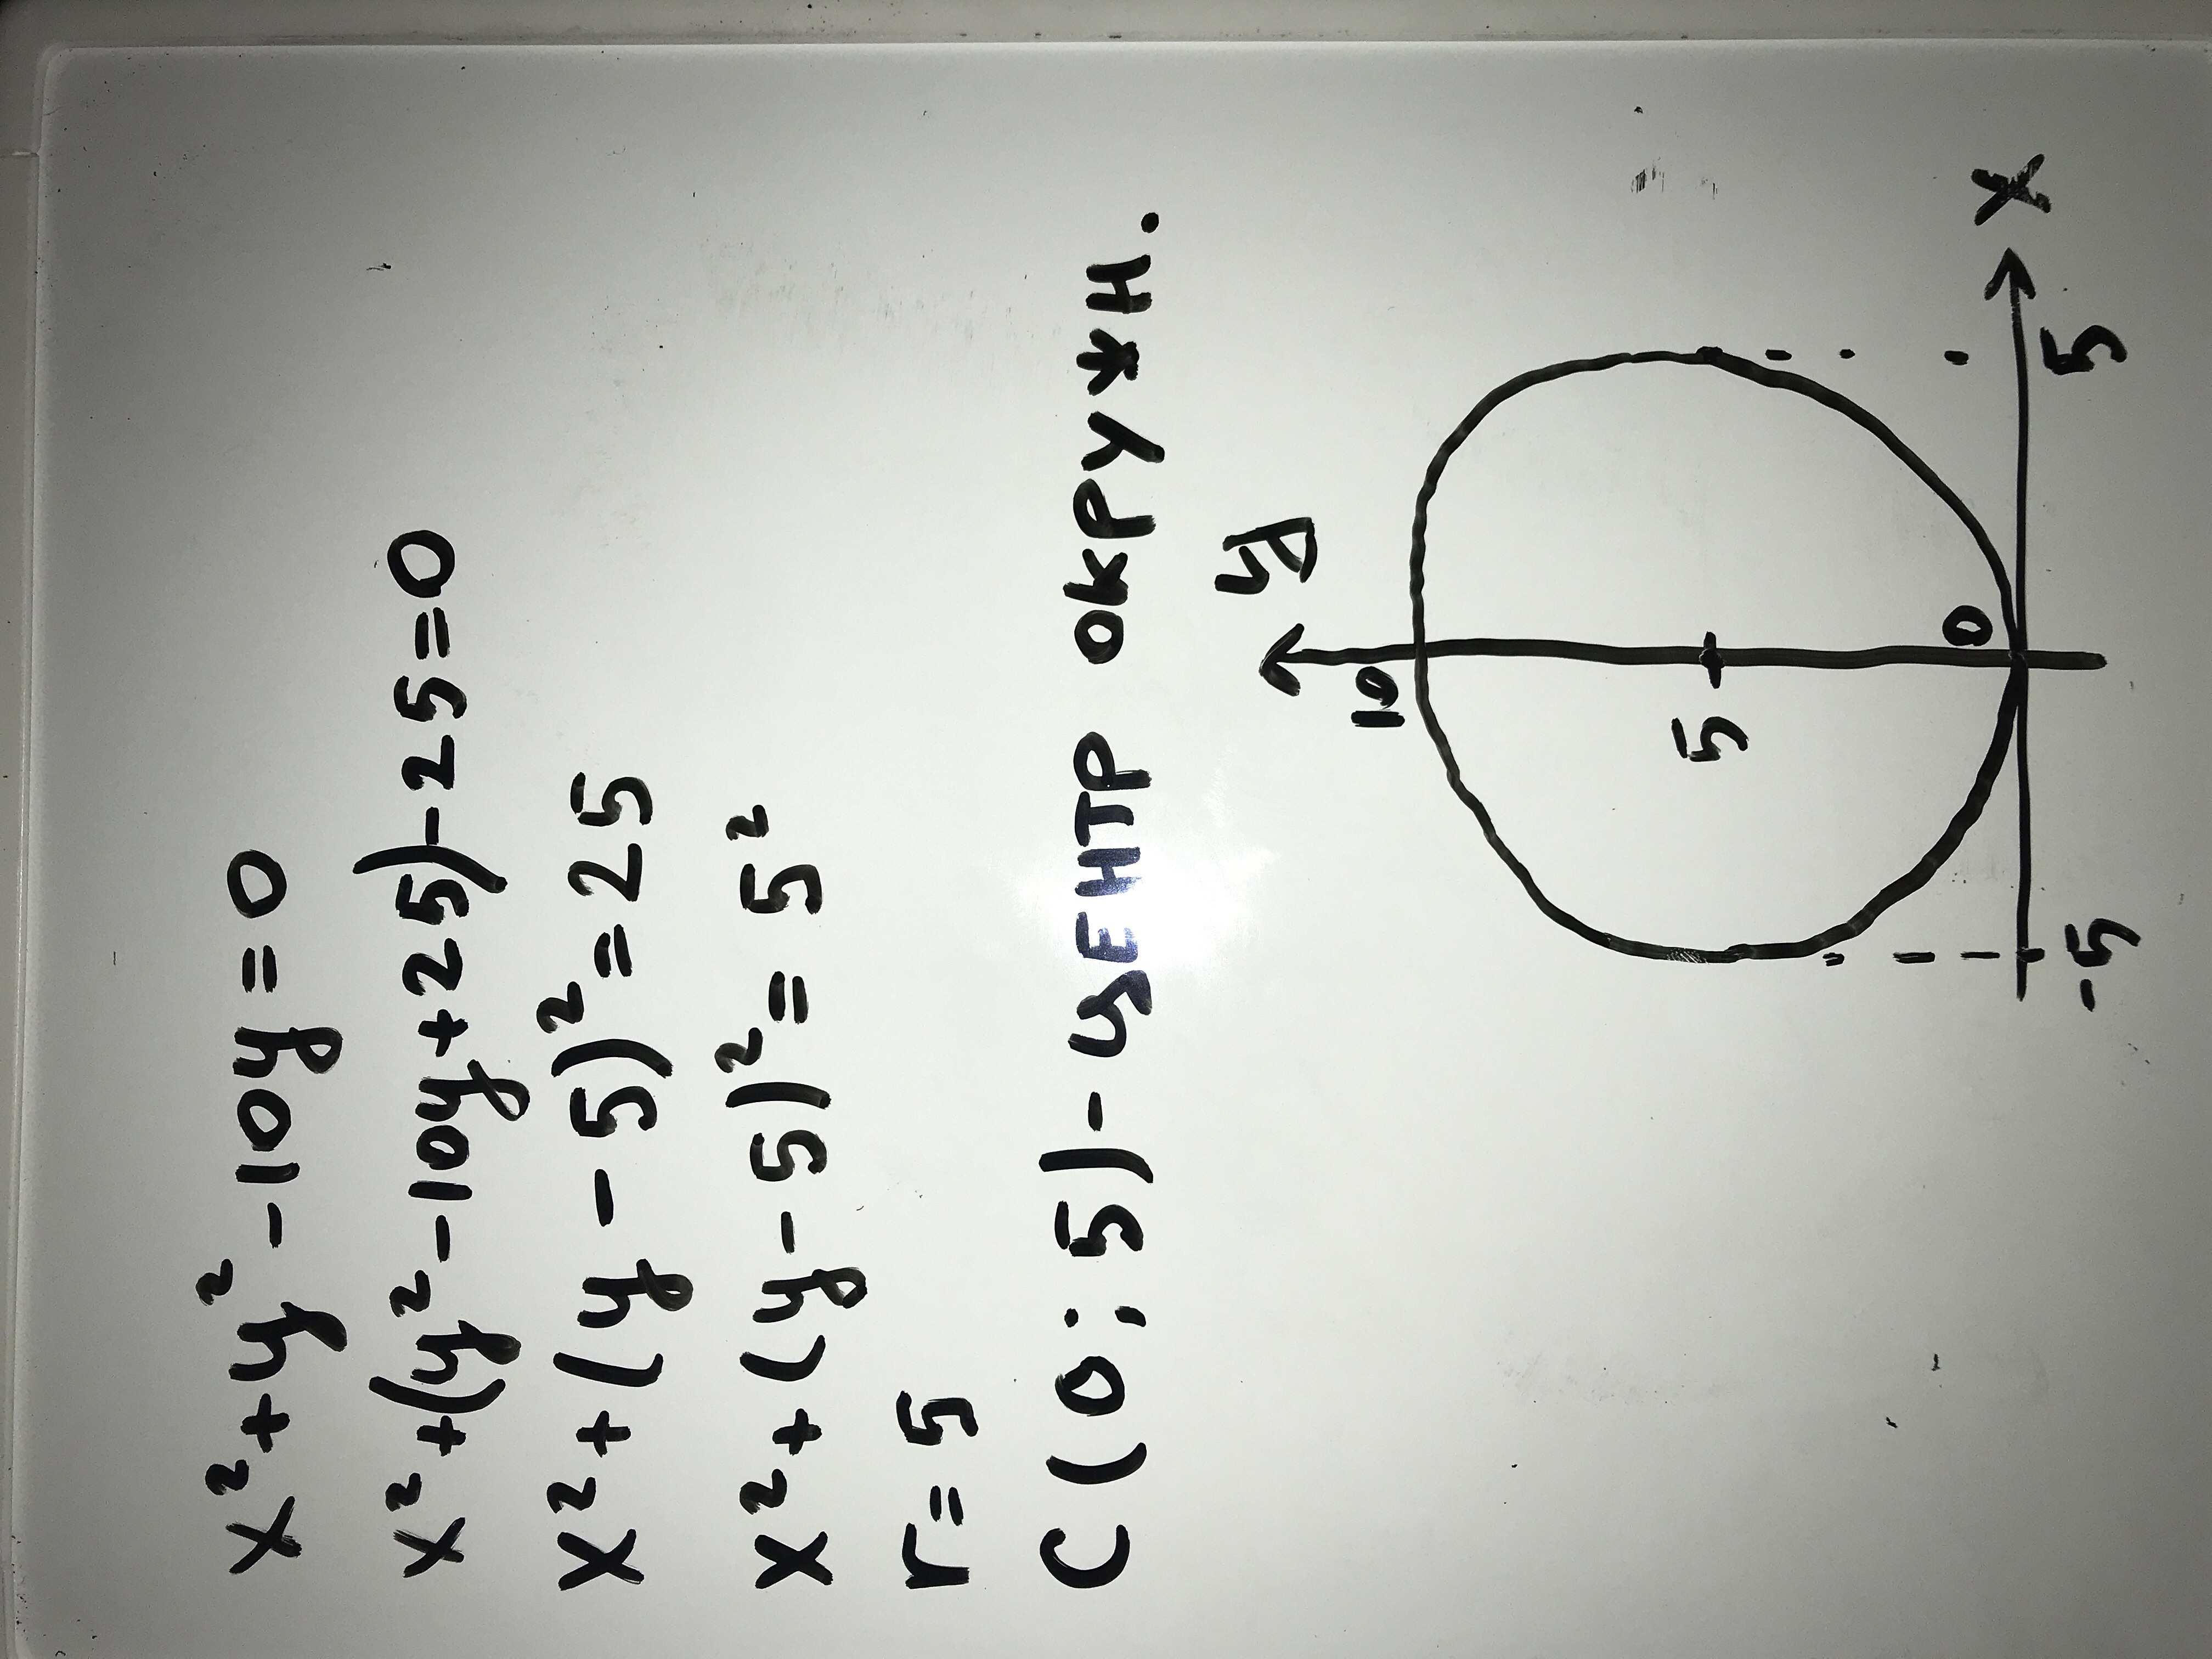 x² + y² - 10y = 0
x² + (y² - 10y + 25) - 25 = 0
x² + (y - 5)² = 25
x² + (y - 5)² = 5²
r = 5
C (0; 5) - центр окружн.
y
10
5
0
x
-5
5